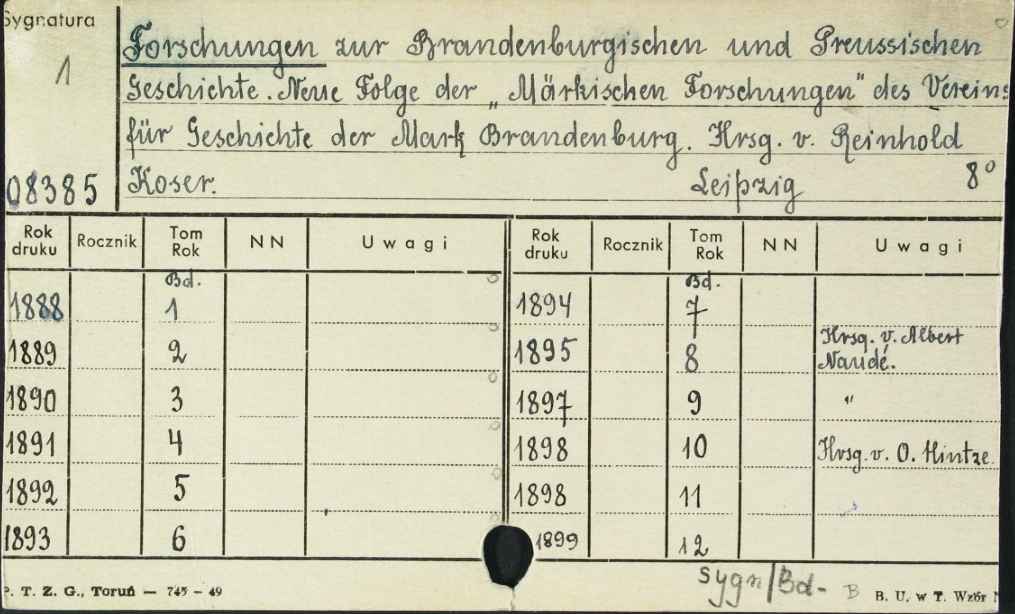 Sygnatura
1
08385
Forschungen zur Brandenburgischen und Preussischen
Geschichte. Neue Folge der „Märkischen Forschungen" des Vereins
für Geschichte der Mark Brandenburg. Hrsg. v. Reinhold
Koser. Leipzig 8°
Rok druku Rocznik Tom Rok NN Uwagi Rok druku Rocznik Tom Rok NN Uwagi
Bd. Bd.
1888 1 1894 7
1889 2 1895 8 Hrsg. v. Albert Naudé.
1890 3 1897 9 "
1891 4 1898 10 Hrsg. v. O. Hintze.
1892 5 1898 11
1893 6 1899 12
sygn/Bd- B
P. T. Z. G., Toruń — 745 - 49 B. U. w T. Wzór